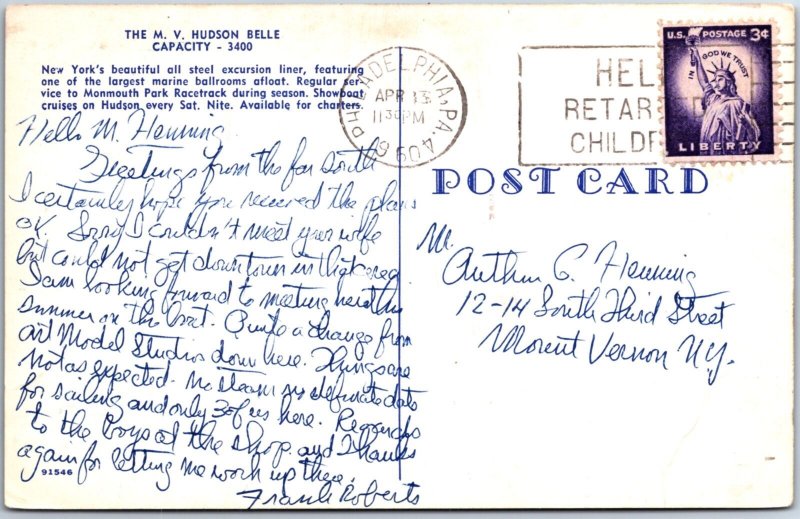 THE M. V. HUDSON BELLE
CAPACITY - 3400
New York's beautiful all steel excursion liner, featuring
one of the largest marine ballrooms afloat. Regular ser-
vice to Monmouth Park Racetrack during season. Showboat
cruises on Hudson every Sat. Nite. Available for charters.
Hello Mr. Henning
Greetings from the far South
I certainly hope you received the plans
OK. Sorry I couldn't meet your wife
but could not get downtown in that
I am looking forward to meeting her this
summer on the boat. Quite a change from
art Model Studios down here. Things are
not as expected. No steam no definite date
for sailing and only 3 of us here. Regards
to the boys at the shop. and Thanks
again for letting me work up there.
Frank Roberts
91546
PHILADELPHIA, PA. 409
APR 13
1130 PM
19 60
HEL
RETAR
CHILD
U.S. POSTAGE 3¢
IN GOD WE TRUST
LIBERTY
POST CARD
Mr.
Arthur C. Henning
12-14 South Third Street
Mount Vernon N.Y.